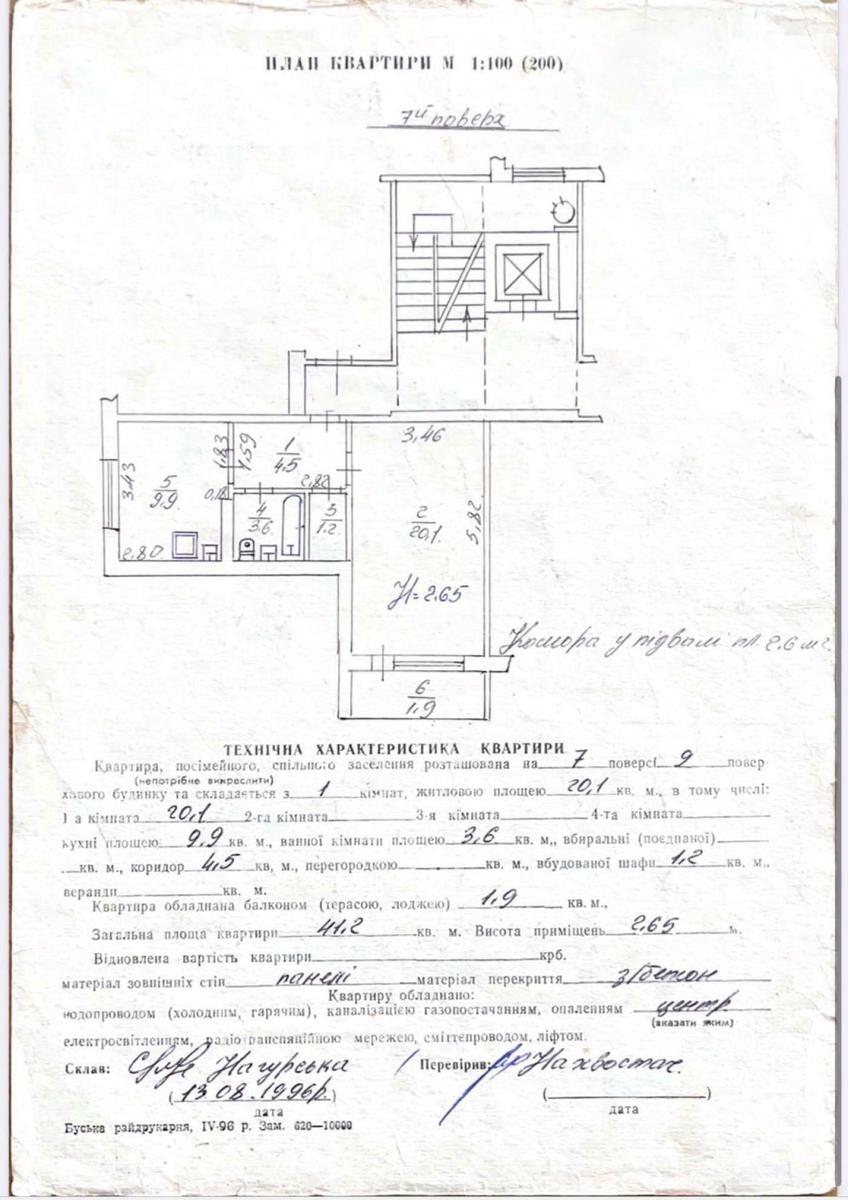 ПЛАН КВАРТИРИ М 1:100 (200)
7й поверх
3,46
1,83
1,59
1
4.5
3.43
5
9.9
2,82
0,12
4
3.6
3
1.2
2
20,1
5,82
2.80
H=2.65
Комора у підвалі пл. 2.6 м²
6
1.9
ТЕХНІЧНА ХАРАКТЕРИСТИКА КВАРТИРИ
Квартира, посімейного, спільного заселення розташована на 7 поверсі 9 повер-
(непотрібне викреслити)
хового будинку та складається з 1 кімнат, житловою площею 20,1 кв. м., в тому числі:
1 а кімната 20,1 2-га кімната 3-я кімната 4-та кімната
кухні площею 9,9 кв. м., ванної кімнати площею 3,6 кв. м,, вбиральні (поєднаної)
кв. м., коридор 4,5 кв, м., перегородкою кв. м., вбудованої шафи 1.2 кв. м.,
веранди кв. м.
Квартира обладнана балконом (терасою, лоджею) 1.9 кв. м.,
Загальна площа квартири 41,2 кв. м. Висота приміщень 2.65 м.
Відновлена вартість квартири крб.
матеріал зовнішніх стін панелі матеріал перекриття з/бетон
Квартиру обладнано:
водопроводом (холодним, гарячим), каналізацією газопостачанням, опаленням центр.
(вказати яким)
електросвітленням, радіотрансляційною мережею, сміттепроводом, ліфтом.
Склав: Нагурська Перевірив: Нахвостач.
(13.08.1996р.) ( )
дата дата
Буська райдрукарня, IV-96 р. Зам. 620—10000